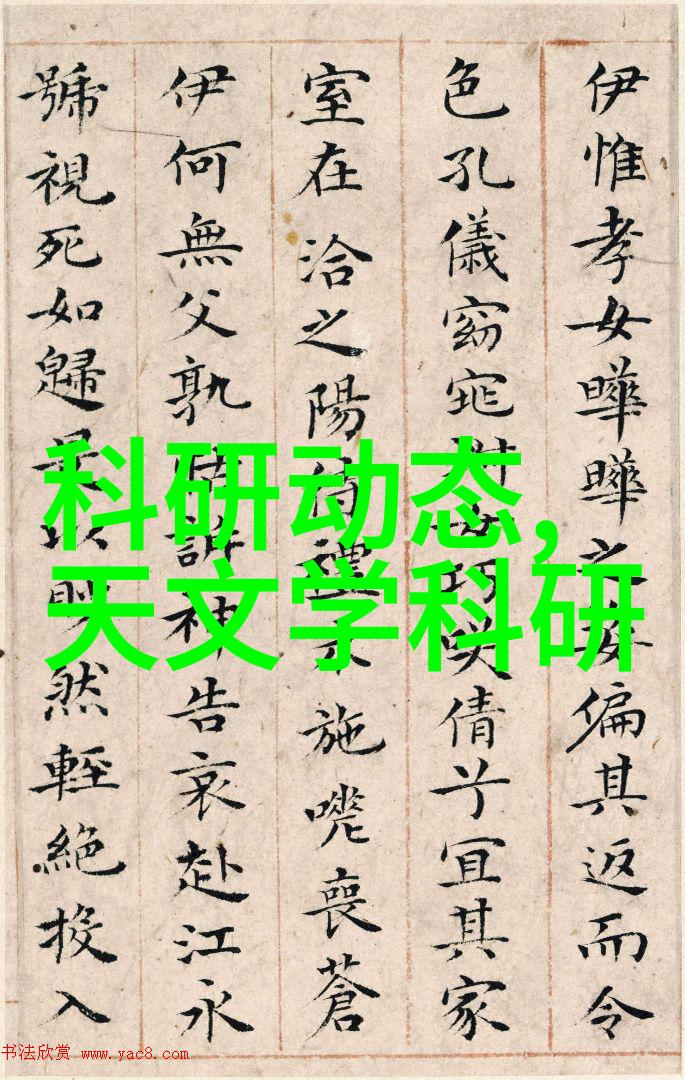 伊惟孝女曄曄之姿偏其返而令
色孔儀窈窕淑女巧笑倩兮宜其家
室在洽之陽待禮未施嗟喪蒼
伊何無父孰怙訴神告哀赴江永
號視死如歸是以眇然輕絕投入
科研动态,
天文学科研
书法欣赏 www.yac8.com